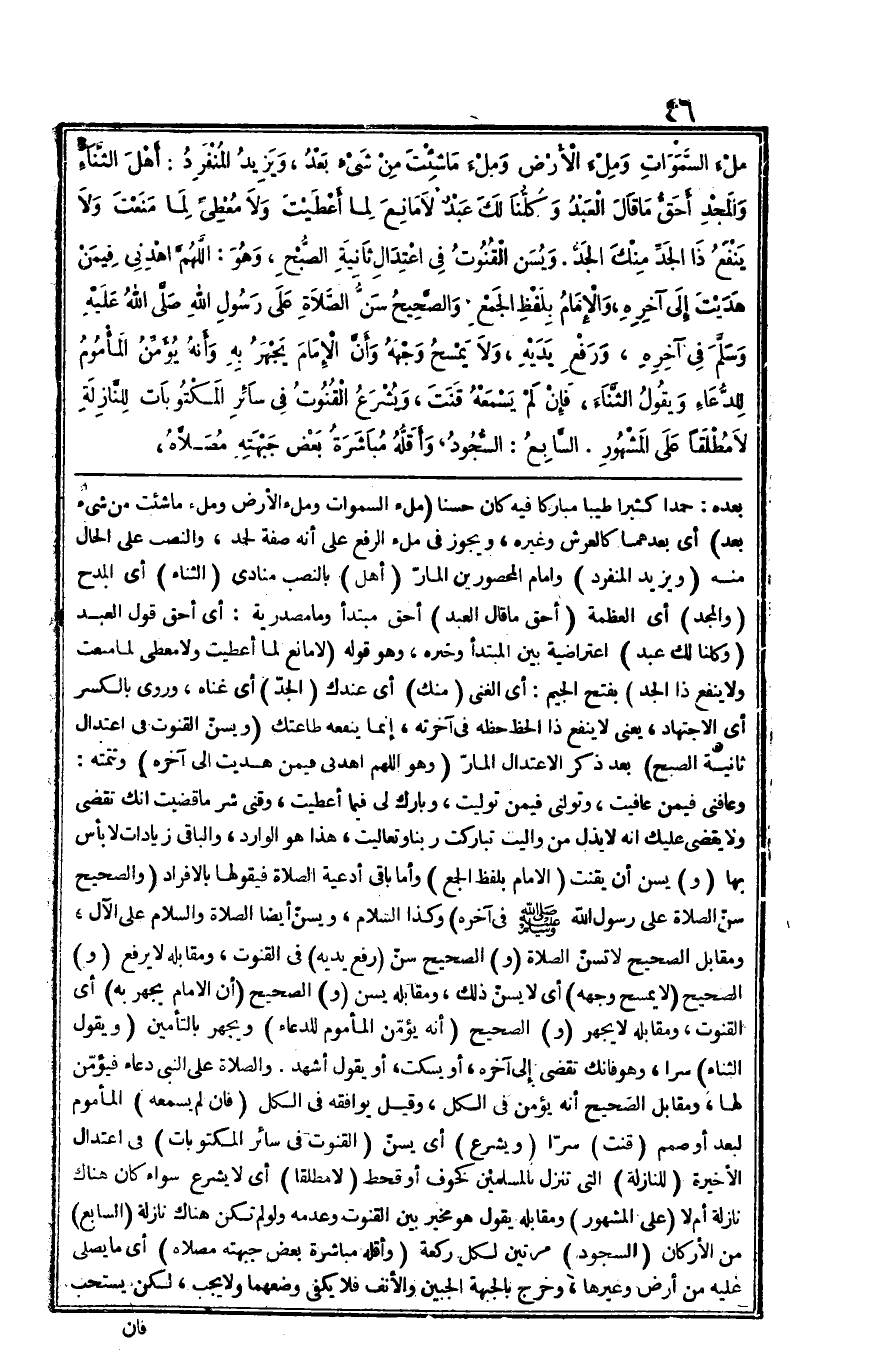 ٤٦
مِلْءَ السَّمَوَاتِ وَمِلْءَ الْأَرْضِ وَمِلْءَ مَاشِئْتَ مِنْ شَيْءٍ بَعْدُ ، وَيَزِيدُ الْمُنْفَرِدُ : أَهْلَ الثَّنَاءِ
وَالْمَجْدِ أَحَقُّ مَاقَالَ الْعَبْدُ وَكُلُّنَا لَكَ عَبْدٌ لَامَانِعَ لِمَا أَعْطَيْتَ وَلَا مُعْطِيَ لِمَا مَنَعْتَ وَلَا
يَنْفَعُ ذَا الْجَدِّ مِنْكَ الْجَدُّ . وَيُسَنُّ الْقُنُوتُ فِي اعْتِدَالِ ثَانِيَةِ الصُّبْحِ ، وَهُوَ : اللَّهُمَّ اهْدِنِي فِيمَنْ
هَدَيْتَ إِلَى آخِرِهِ ، وَالْإِمَامُ بِلَفْظِ الْجَمْعِ . وَالصَّحِيحُ سَنُّ الصَّلَاةِ عَلَى رَسُولِ اللهِ صَلَّى اللهُ عَلَيْهِ
وَسَلَّمَ فِي آخِرِهِ ، وَرَفْعِ يَدَيْهِ ، وَلَا يَمْسَحُ وَجْهَهُ وَأَنَّ الْإِمَامَ يَجْهَرُ بِهِ وَأَنَّهُ يُؤَمِّنُ الْمَأْمُومُ
لِلدُّعَاءِ وَيَقُولُ الثَّنَاءَ ، فَإِنْ لَمْ يَسْمَعْهُ قَنَتَ ، وَيُشْرَعُ الْقُنُوتُ فِي سَائِرِ الْمَكْتُوبَاتِ لِلنَّازِلَةِ
لَامُطْلَقًا عَلَى الْمَشْهُورِ . السَّابِعُ : السُّجُودُ ، وَأَقَلُّهُ مُبَاشَرَةُ بَعْضِ جَبْهَتِهِ مُصَلَّاهُ ،
بعده : حمدا كثيرا طيبا مباركا فيه كان حسنا (ملء السموات وملء الأرض وملء ماشئت من شىء
بعد) أى بعدهما كالعرش وغيره ، ويجوز فى ملء الرفع على أنه صفة لحمد ، والنصب على الحال
منه (ويزيد المنفرد) وامام المحصورين المارّ (أهل) بالنصب منادى (الثناء) أى المدح
(والمجد) أى العظمة (أحق ماقال العبد) أحق مبتدأ ومامصدرية : أى أحق قول العبد
(وكلنا لك عبد) اعتراضية بين المبتدأ وخبره ، وهو قوله (لامانع لما أعطيت ولامعطى لمامنعت
ولاينفع ذا الجد) بفتح الجيم : أى الغنى (منك) أى عندك (الجدّ) أى غناه ، وروى بالكسر
أى الاجتهاد ، يعنى لاينفع ذا الحظ حظه فى آخرته ، إنما ينفعه طاعتك (ويسنّ القنوت فى اعتدال
ثانية الصبح) بعد ذكر الاعتدال المارّ (وهو اللهم اهدنى فيمن هديت الى آخره) وتتمته :
وعافنى فيمن عافيت ، وتولنى فيمن توليت ، وبارك لى فيما أعطيت ، وقنى شر ماقضيت انك تقضى
ولايقضى عليك انه لايذل من واليت تباركت ربناوتعاليت ، هذا هو الوارد ، والباقى زيادات لابأس
بها (و) يسن أن يقنت (الامام بلفظ الجمع) وأما باقى أدعية الصلاة فيقولها بالافراد (والصحيح
سنّ الصلاة على رسول الله ﷺ فى آخره) وكذا السلام ، ويسنّ أيضا الصلاة والسلام على الآل ،
ومقابل الصحيح لاتسنّ الصلاة (و) الصحيح سنّ (رفع يديه) فى القنوت ، ومقابله لايرفع (و)
الصحيح (لايمسح وجهه) أى لايسنّ ذلك ، ومقابله يسن (و) الصحيح (أن الامام يجهر به) أى
القنوت ، ومقابله لايجهر (و) الصحيح (أنه يؤمّن المأموم للدعاء) ويجهر بالتأمين (ويقول
الثناء) سرا ، وهوفانك تقضى إلى آخره ، أويسكت ، أو يقول أشهد . والصلاة على النبى دعاء فيؤمّن
لها ، ومقابل الصحيح أنه يؤمن فى الكل ، وقيل يوافقه فى الكل (فان لم يسمعه) المأموم
لبعد أوصمم (قنت) سرّا (ويشرع) أى يسنّ (القنوت فى سائر المكتوبات) فى اعتدال
الأخيرة (للنازلة) التى تنزل بالمسلمين كخوف أوقحط (لامطلقا) أى لايشرع سواء كان هناك
نازلة أم لا (على المشهور) ومقابله يقول هو مخير بين القنوت وعدمه ولولم تكن هناك نازلة (السابع)
من الأركان (السجود) مرتين لكل ركعة (وأقله مباشرة بعض جبهته مصلاه) أى مايصلى
عليه من أرض وغيرها ، وخرج بالجبهة الجبين والأنف فلايكفى وضعهما ولايجب ، لكن يستحب
فان